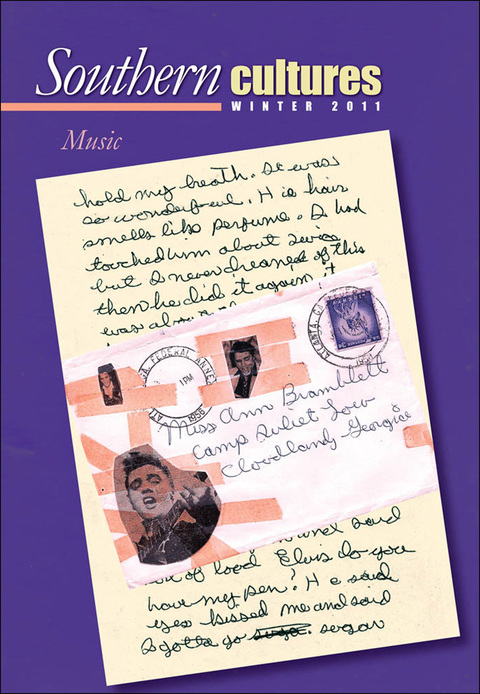 Southern cultures
WINTER 2011
Music
hold my breath. It was
so wonderful. His hair
smells like perfume. I had
touched him about twice
but I never dreamed of this
then he did it again it
was
GA. FEDERAL ANNEX
1 PM
1956
ATLANTA, GA
Miss Ann Bramblett
Camp Juliet Low
Cloudland Georgia
and said
of loud Elvis do you
have my pen? He said
yes kissed me and said
I gotta go sugar